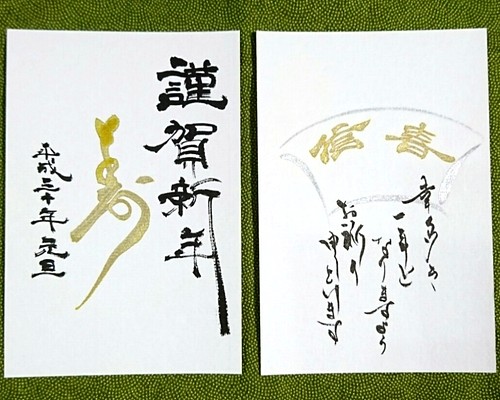 謹賀新年
寿
平成三十年 元旦
春信
幸多き
一年と
なりますよう
お祈り
申し上げます